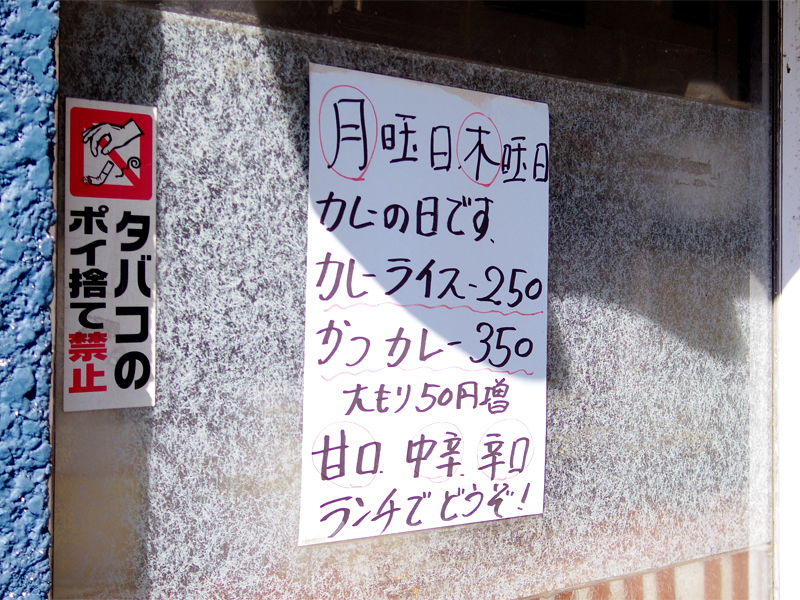 タバコの
ポイ捨て禁止
月曜日.木曜日
カレーの日です、
カレーライス-250
かつカレー350
大もり50円増
甘口 中辛 辛口
ランチでどうぞ!